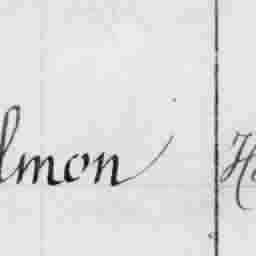 lmon H